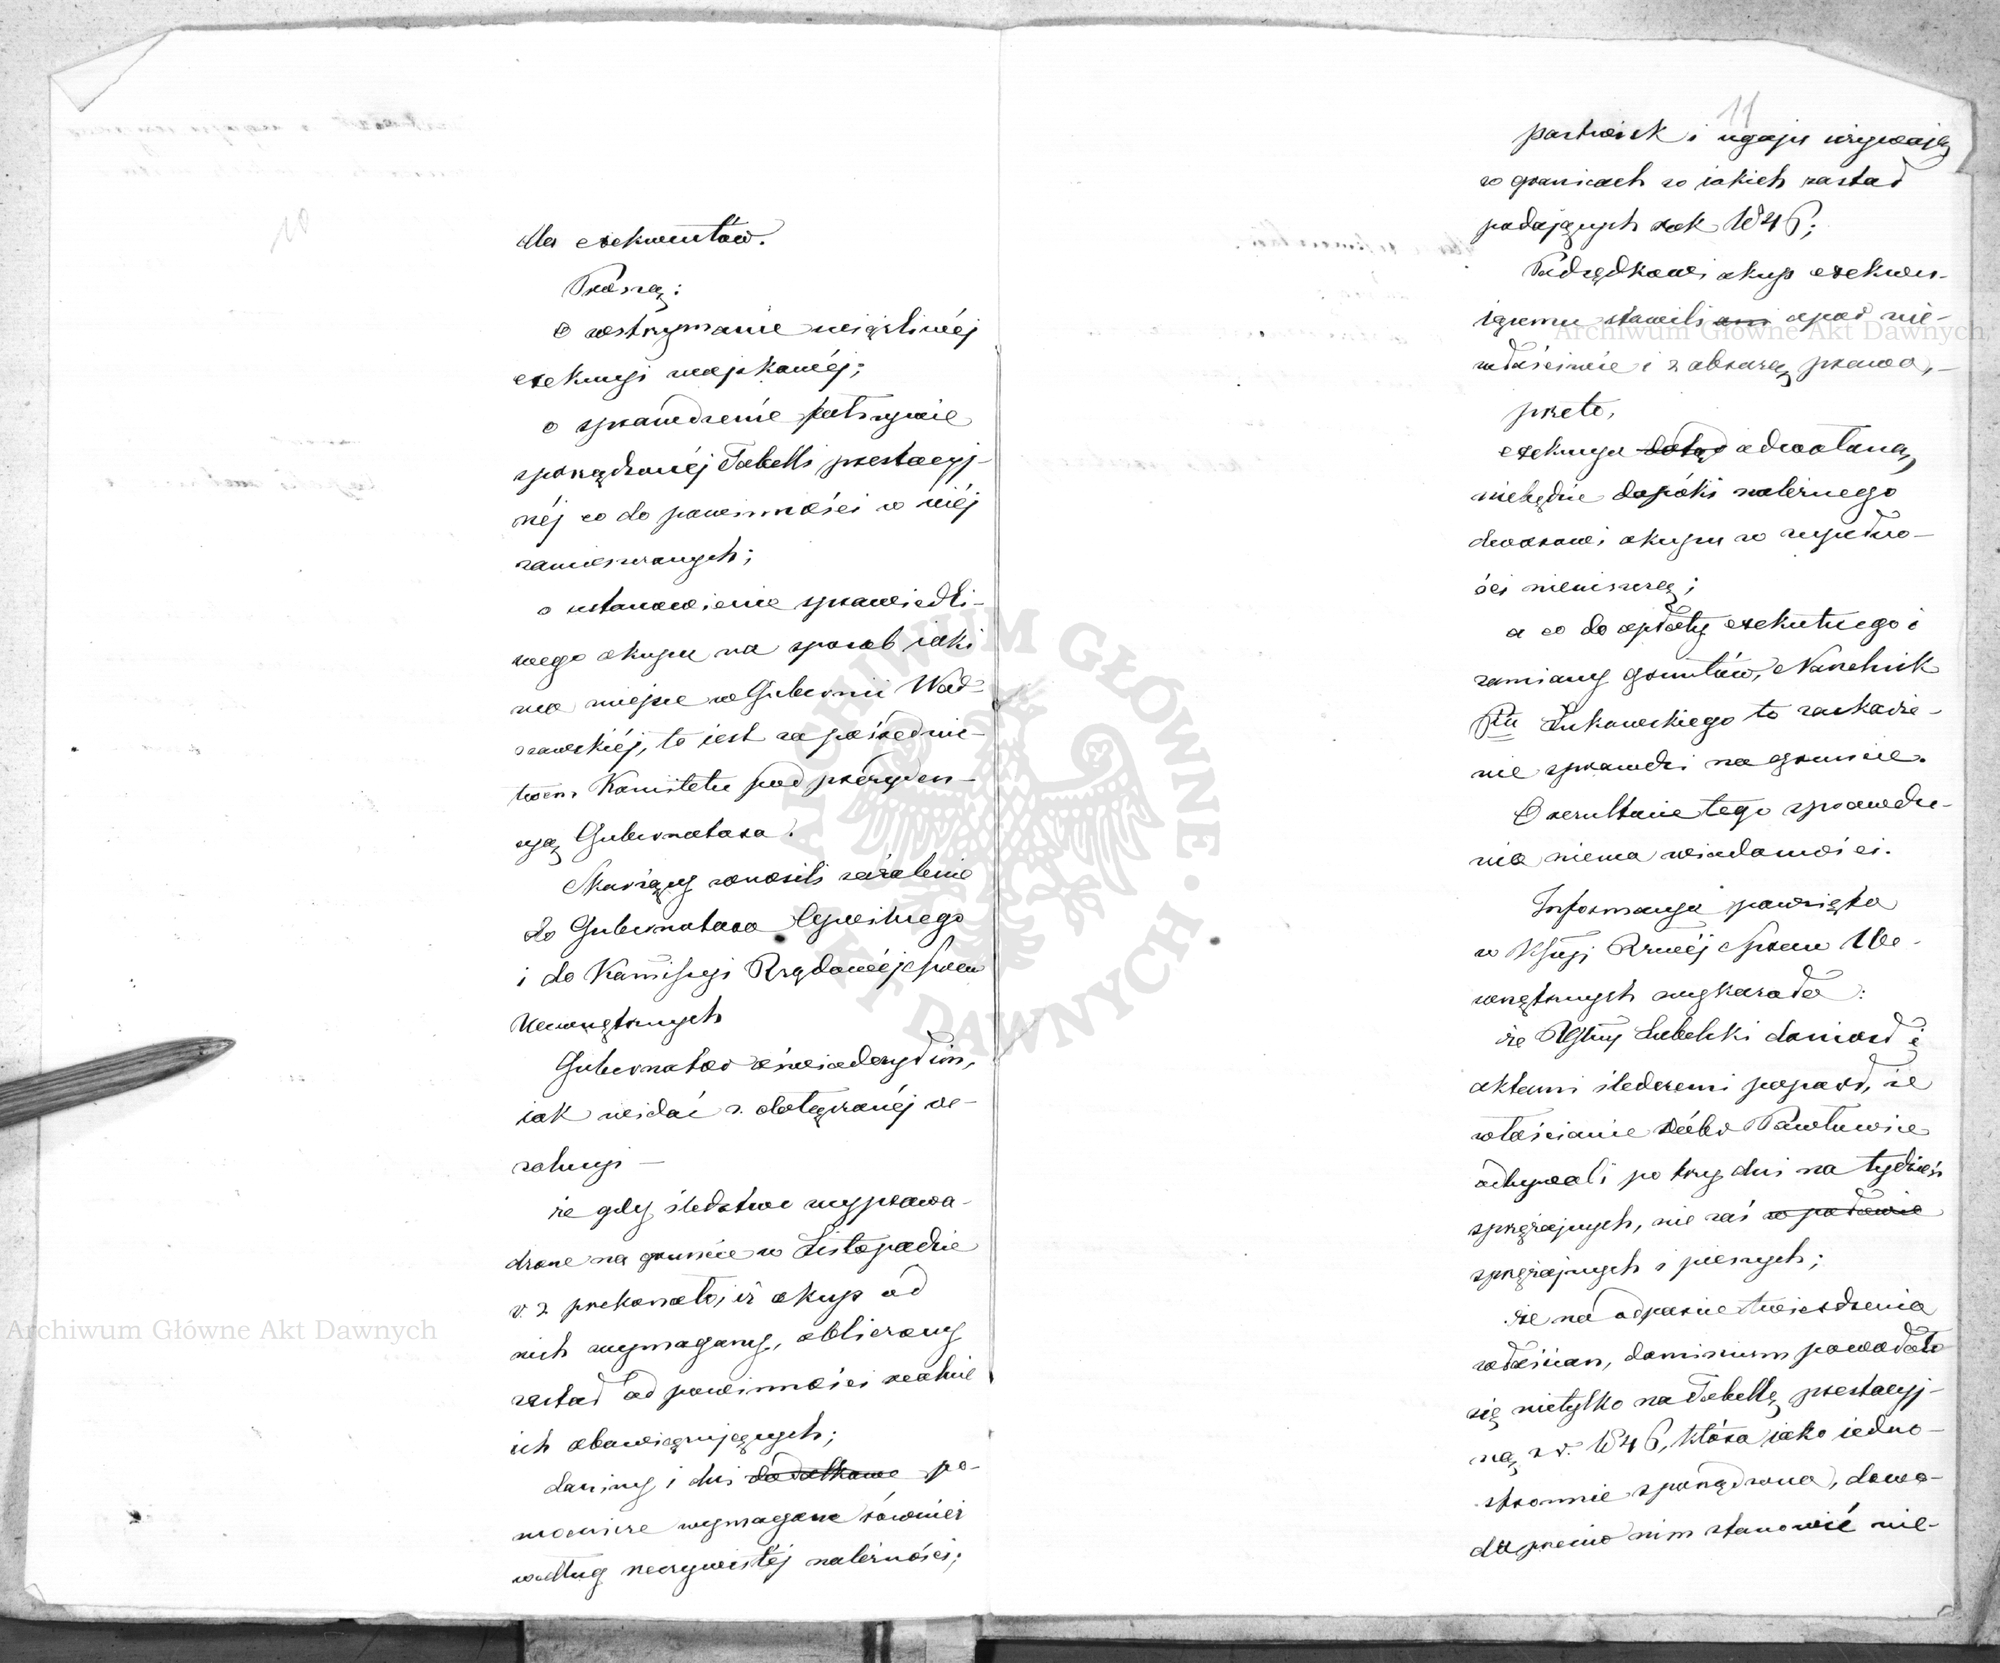 10
dla exekwentów.
Proszą:
o wstrzymanie uciążliwéj
exekucyi wojskowéj;
o sprawdzenie fałszywie
sporządzonéj Tabelli prestacyj-
néj co do powinności w niéj
zamieszczonych;
o ustanowienie sprawiedli-
wego okupu na sposób iaki
ma miejsce w Gubernii War-
szawskiéj, to iest za pośrednic-
twem Komitetu pod prezyden-
cyą Gubernatora.
Skarżący zanosili zażalenie
do Gubernatora Cywilnego
i do Kommissyi Rządowéj Spraw
Wewnętrznych
Gubernator oświadczył im,
iak widać z dołączonéj re-
zolucyi —
że gdy śledztwo wyprowa-
dzone na gruncie w Listopadzie
r. z. przekonało, iż okup od
nich wymagany, obliczony
został od powinności realnie
ich obowiązujących;
daniny i dni dodatkowe po-
mocnicze wymagane również
według rzeczywistéj należności;
11
pastwisk i ugaju używają
w granicach w iakich zastał
podających rok 1846;
Porządkowi okup exekwu-
iącemu stawili opór nie-
właściwie i z obrazą prawa,-
przeto,
exekucya dotąd odwołaną
niebędzie dopóki należnego
dworowi okupu w zupełno-
ści nieuiszczą;
a co do opłaty exekutnego i
zamiany gruntów, Naczelnik
Ptu Łukowskiego to zaskarże-
nie sprawdzi na gruncie.
O rezultacie tego sprawdze-
nia niema wiadomości.
Informacya powzięta
w Kssyi Rzwéj Spraw We-
wnętrznych wykazała:
że Rząd Gubny Lubelski doniosł i
aktami śledczemi poparł, że
włościanie dóbr Pawłowice
odbywali po trzy dni na tydzień
sprzężajnych, nie zaś w połowie
sprzężajnych i pieszych;
że na odparcie twierdzenia
włościan, dominium powołało
się nietylko na Tabellę prestacyj-
ną z r. 1846, która iako iedno-
stronnie sporządzona, dowo-
du przeciw nim stanowić nie-
Archiwum Główne Akt Dawnych
Archiwum Główne Akt Dawnych
ARCHIWUM GŁÓWNE AKT DAWNYCH